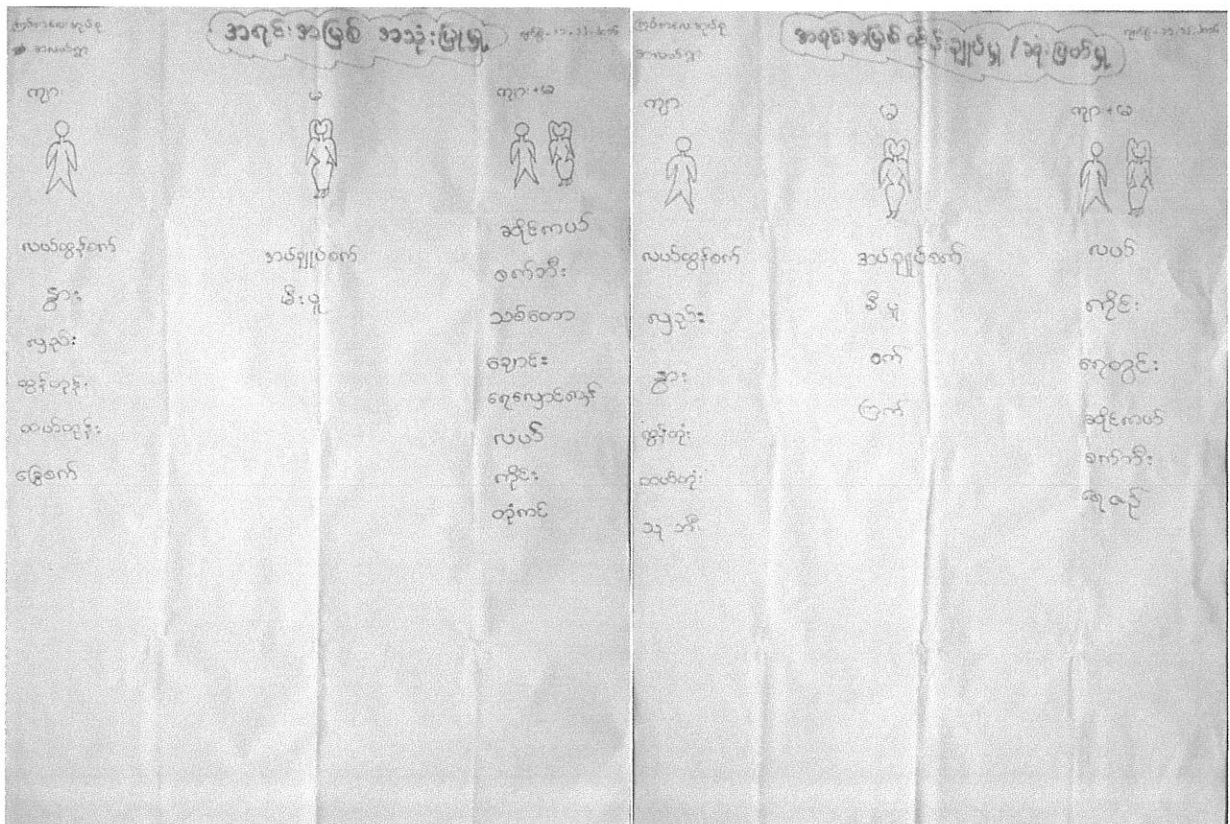 အရင်းအမြစ် အသုံးပြုမှု
ကျား
မ
ကျား+မ
လယ်ထွန်စက်
နွား
လှည်း
ထွန်တုန်း
ထယ်တုန်း
ခြွေစက်
အပ်ချုပ်စက်
မီးပူ
ဆိုင်ကယ်
စက်ဘီး
သစ်တော
ချောင်း
ရေလှောင်ကန်
လယ်
ကိုင်း
တုံကင်
အရင်းအမြစ် ထိန်းချုပ်မှု / ဆုံးဖြတ်မှု
ကျာ
မ
ကျား+မ
လယ်ထွန်စက်
လှည်း
နွား
ထွန်တုံး
ထယ်တုံး
အပ်ချုပ်စက်
မီပူ
ဝက်
ကြက်
လယ်
ကိုင်း
ရေတွင်း
ဆိုင်ကယ်
စက်ဘီး